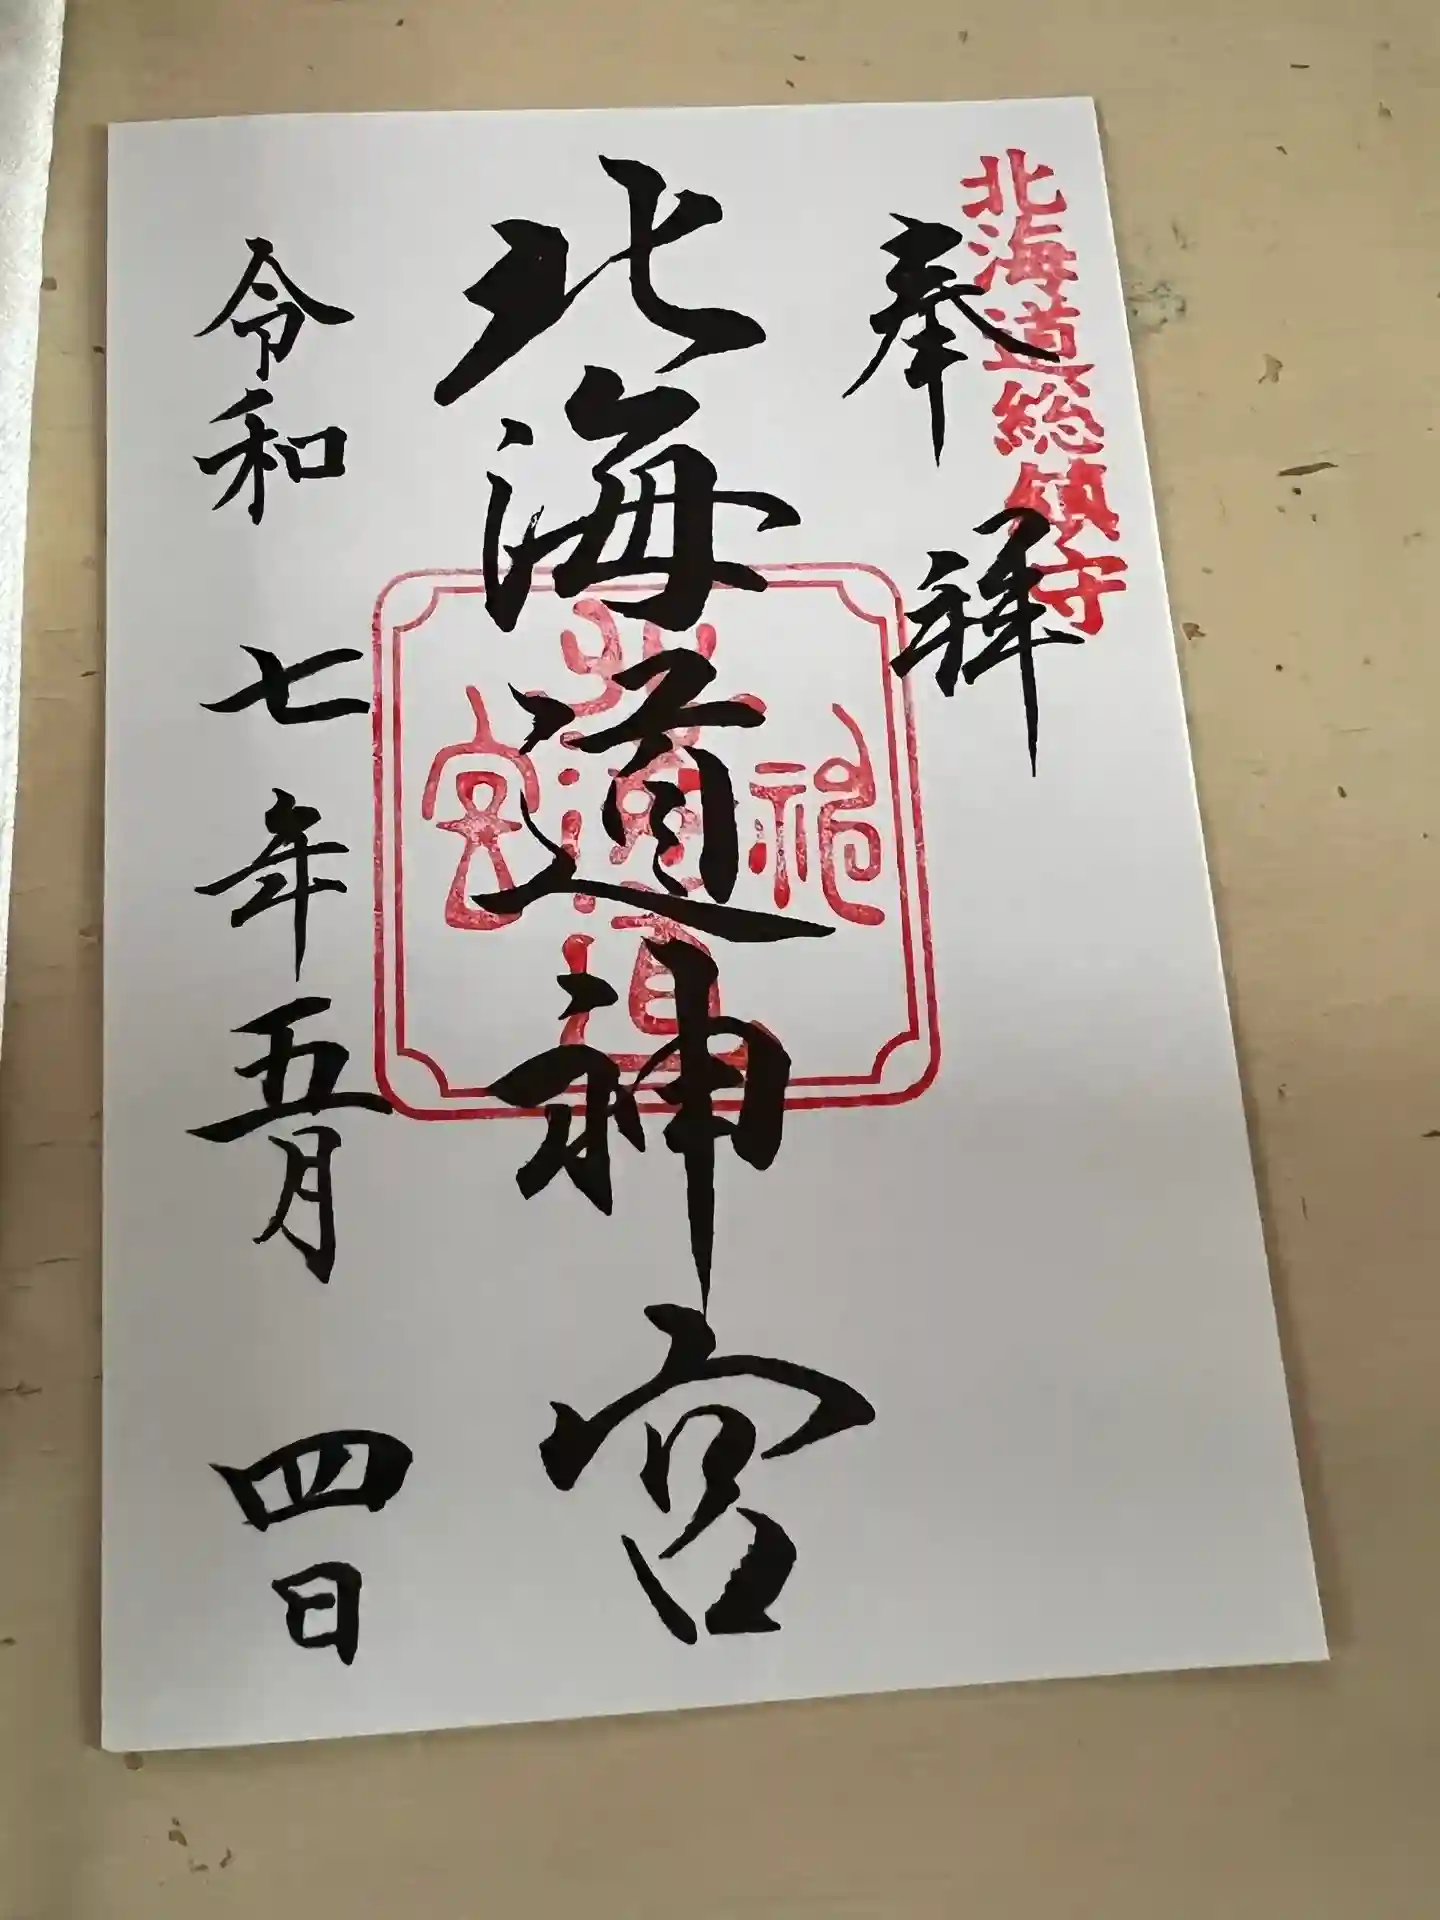 北海道総鎮守
奉拝
北海道神宮
北海道神宮
令和七年五月四日